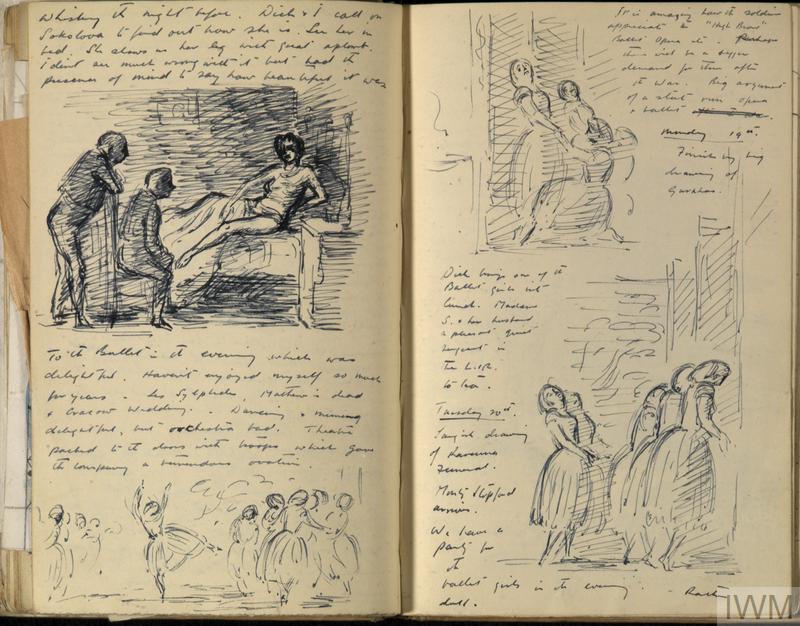 Whisky the night before. Dick & I call on
Sokolova to find out how she is. See her in
bed. She shows us her leg with great aplomb.
I didn't see much wrong with it but had the
presence of mind to say how beautiful it was
To the Ballet in the evening which was
delightful. Haven't enjoyed myself so much
for years - Les Sylphides, Matthew is dead
& Cracow Wedding. Dancing & miming
delightful, but orchestra bad. Theatre
packed to the doors with troops which gave
the company a tremendous ovation
It is amazing how the soldiers
appreciate the "High Brow"
Ballet Opera etc. Perhaps
there will be a bigger
demand for them after
the war. Big argument
of a state run opera
& ballet
Monday 19th
Finish my big
drawing of
Dick brings one of the
Ballet girls into
lunch. Madame
S. & her husband
a pleasant quiet
sergeant in
the
to tea.
Tuesday 20th
drawing
of
Funeral.
Monty
arrives.
We have a
party for
the
ballet girls in the evening
dull.
IWM